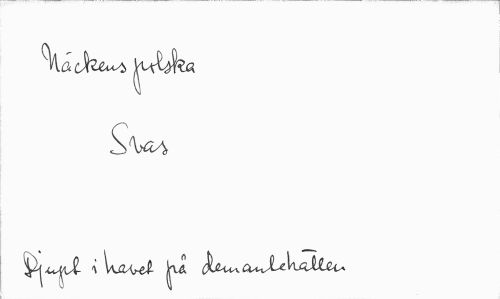 Näckens polska
Svas
Djupt i havet på demantehällen